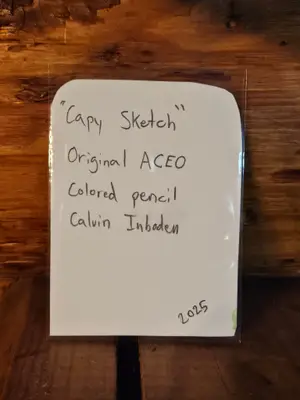 "Capy Sketch"
Original ACEO
Colored pencil
Calvin Inboden
2025